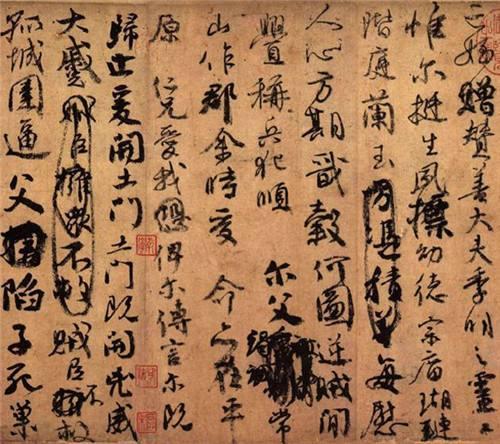 亡姪贈贊善大夫季明之靈曰
惟尔挺生夙標幼德宗廟瑚璉
階庭蘭玉方憑積善每慰
人心方期戩穀何圖逆賊閒
釁稱兵犯順尔父竭誠常
山作郡余時受命亦在平
原仁兄愛我恐俾尔傳言尔既
歸止爰開土門土門既開兇威
大蹙賊臣擁衆不救賊臣不擁救
孤城圍逼父擒陷子死巢